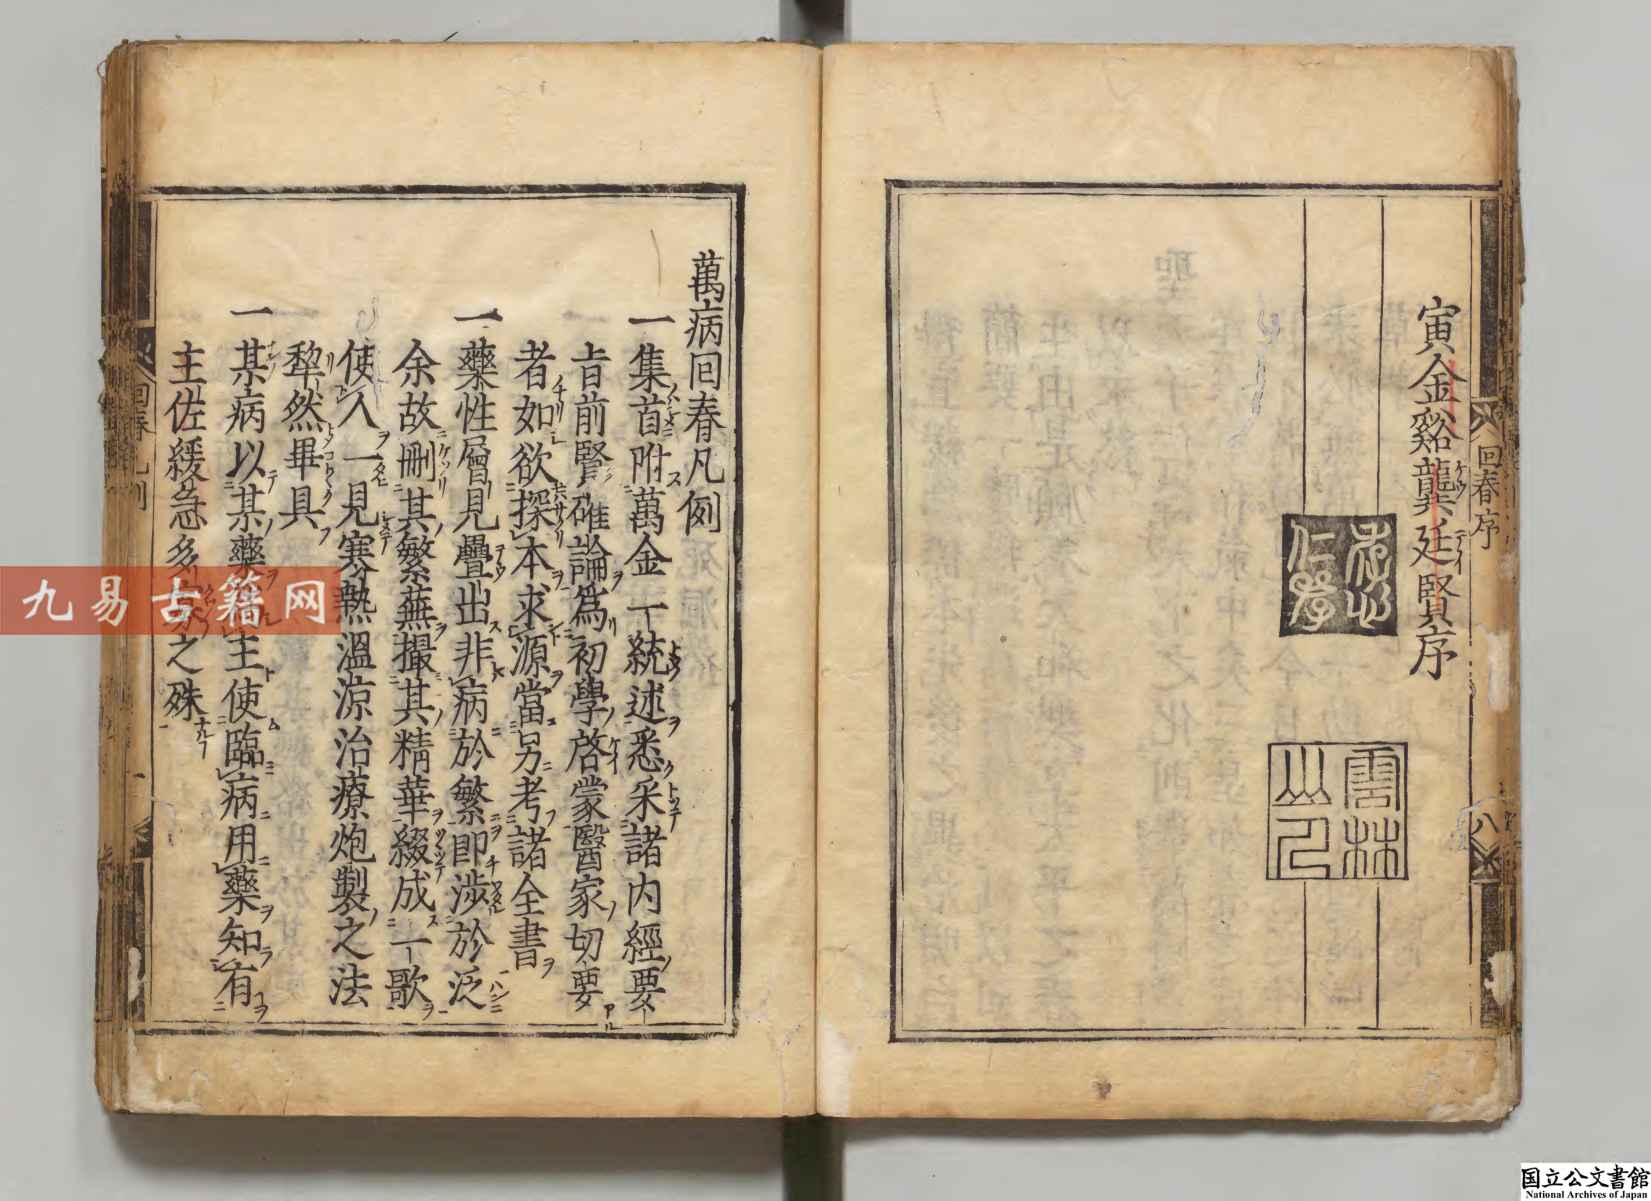 寅金谿龔廷賢序
仁孝
雲林
山人
回春序
八
萬病回春凡例
一集首附萬金一統述悉采諸内經要
旨前賢確論爲初學啓蒙醫家切要
者如欲探本求源當另考諸全書
一藥性層見疊出非病於繁即渉於泛
余故刪其繁蕪撮其精華綴成一歌
使人一見寒熱温涼治療炮製之法
犂然畢具
一某病以某藥主使臨病用藥知有
主佐緩急多之殊
九易古籍网
国立公文書館
National Archives of Japan